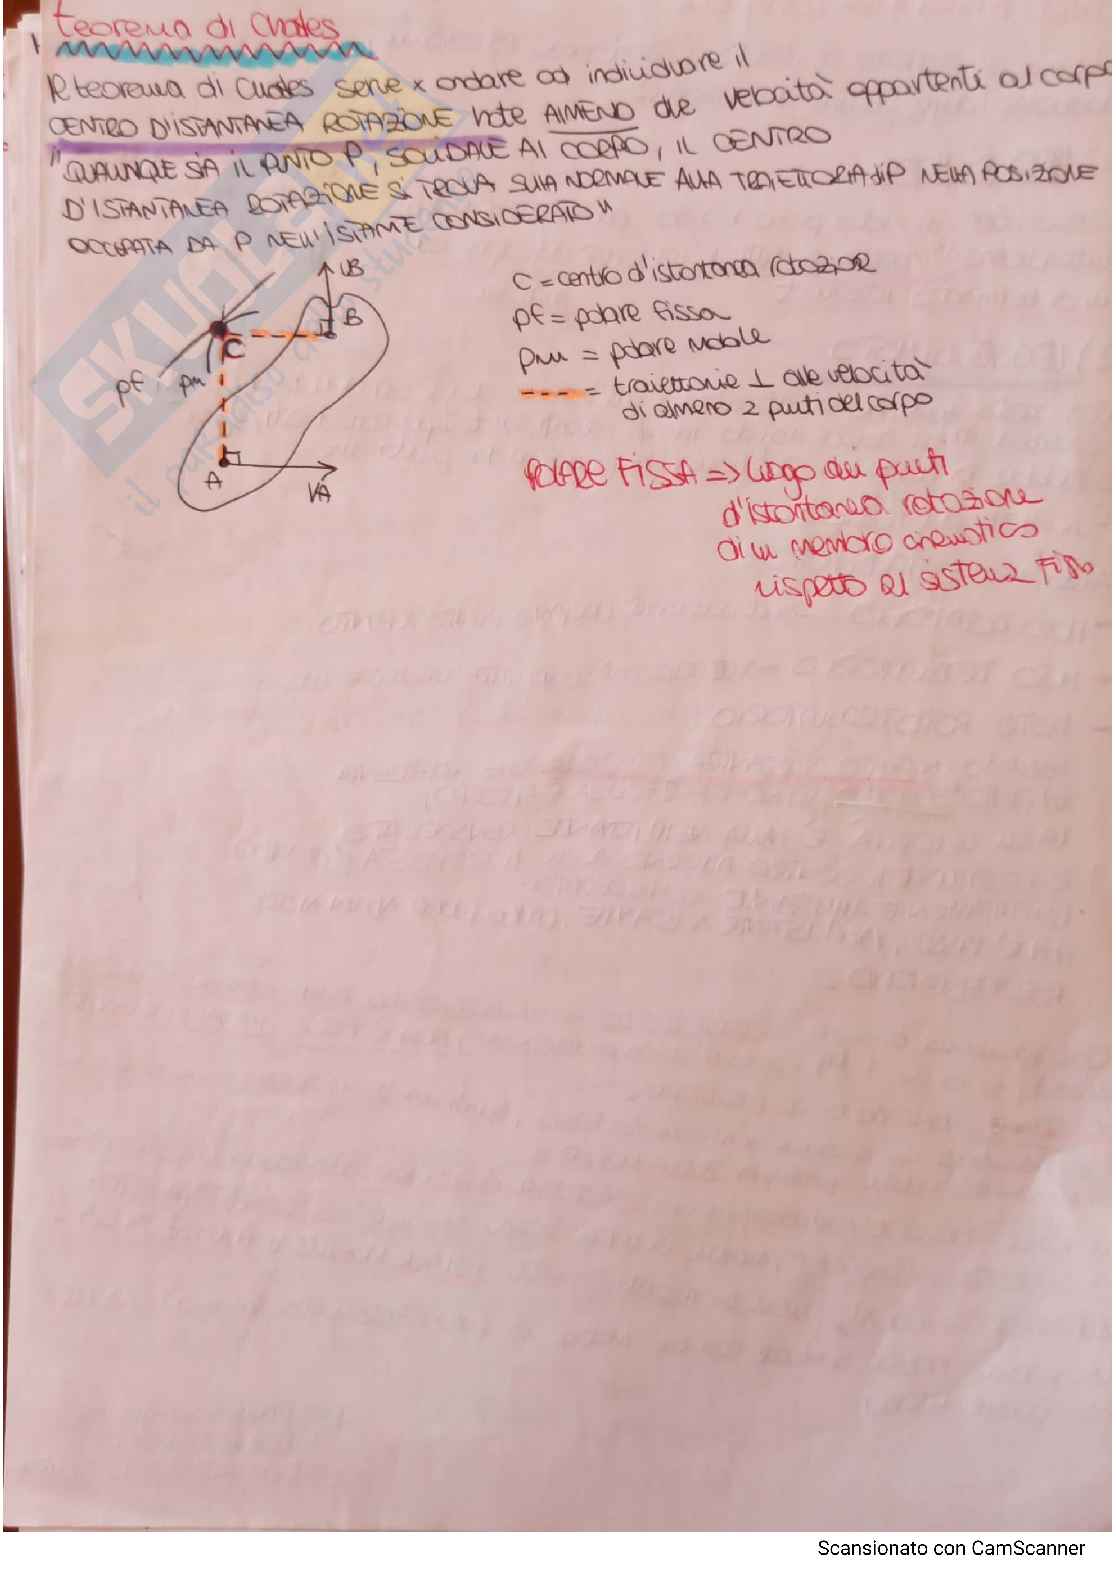 teorema di Chasles
Il teorema di Chasles serve x andare ad individuare il
CENTRO D'ISTANTANEA ROTAZIONE note ALMENO due velocità appartenti al corpo
"QUALUNQUE SIA IL PUNTO P, SOLIDALE AL CORPO, IL CENTRO
D'ISTANTANEA ROTAZIONE SI TROVA SULLA NORMALE ALLA TRAIETTORIA di P NELLA POSIZIONE
OCCUPATA DA P NELL'ISTANTE CONSIDERATO"
VB
B
C
pf
pm
A
VA
C = centro d'istantanea rotazione
pf = polare fissa
pm = polare mobile
= traiettorie ⊥ alle velocità
di almeno 2 punti del corpo
POLARE FISSA => luogo dei punti
d'istantanea rotazione
di un membro cinematico
rispetto al sistema fisso
SKUOLA
il paradiso dello studente
Scansionato con CamScanner